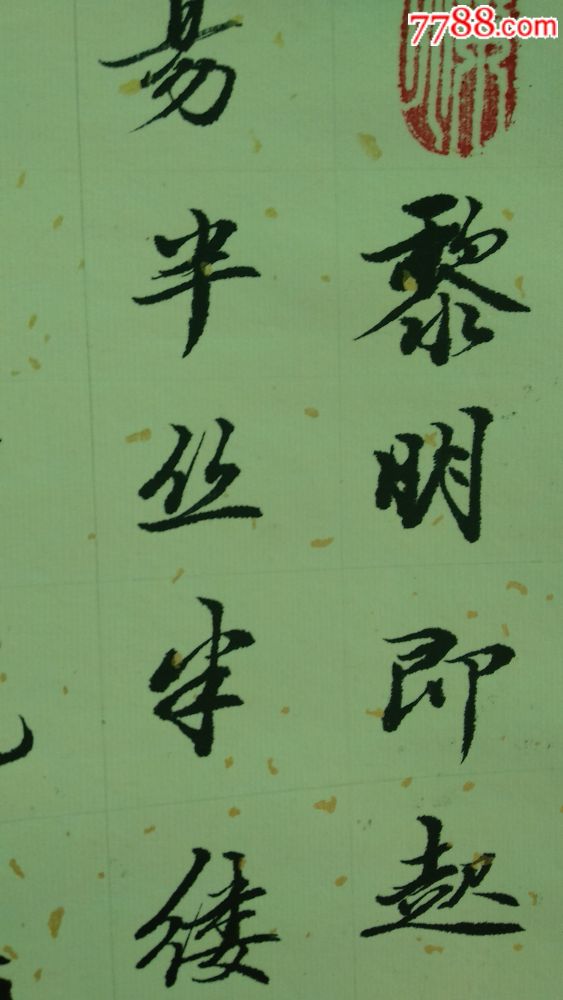 7788.com
黎明即起
易半丝半缕